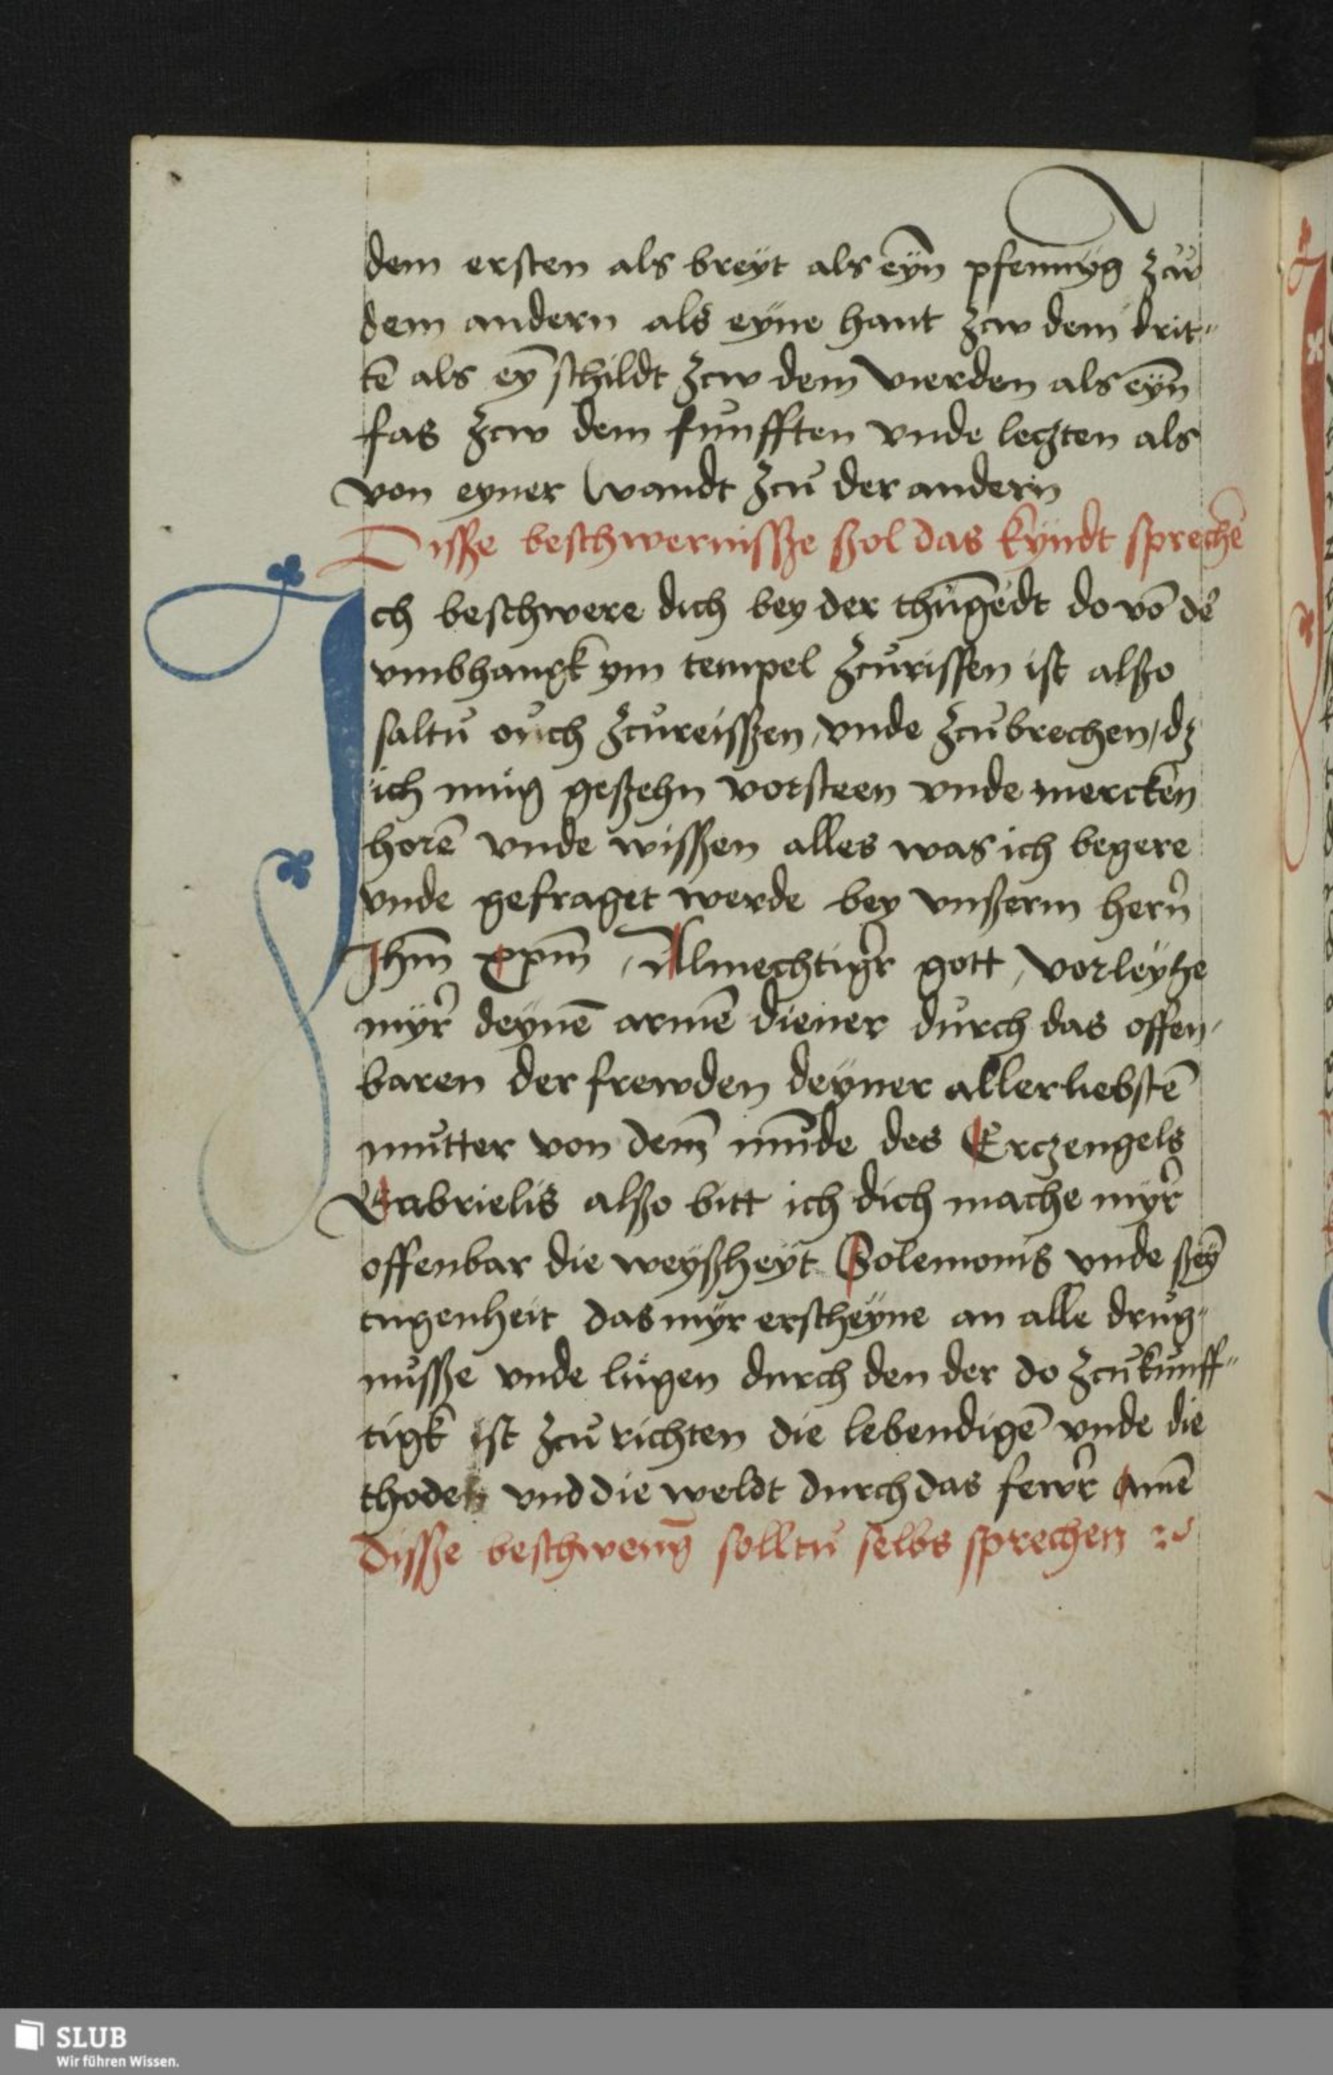 dem ersten als breyt als eȳn pfennyg zcw
dem andern als eyne hant zcw dem drit⸗
tē als eȳ schildt zcw dem vierden als eȳn
fas zcw dem funfften vnde leczten als
von eyner wandt zcu der andern
Disße beschwernisße ßol das kyndt sprechē
Ich beschwere dich bey der thugēdt do vō dē
vmbhangk ym tempel zcurissen ist alßo
saltu ouch zcureisßen, vnde zcubrechen, dz
ich mug geßehn vorsteen vnde mercken
horē vnde wisßen alles was ich begere
vnde gefraget werde bey vnßerm hern
Jhm̄ xpm̄, Almechtigr gott, vorleyhe
myr deynē armē diener durch das offen⸗
baren der frewden deyner allerliebstē
mutter von dem̄ mūde des Erczengels
Gabrielis alßo bitt ich dich mache myr
offenbar die weyßheyt Solemonis vnde ßeȳ
tugenheit das myr erscheyne an alle drug⸗
nusße vnde lugen durch den der do zcukunff⸗
tigk ist zcu richten die lebendigē vnde die
thoden vnd die weldt durch das fewr amē
Disße beschwenḡ solltu selbs sprechen
SLUB
Wir führen Wissen.